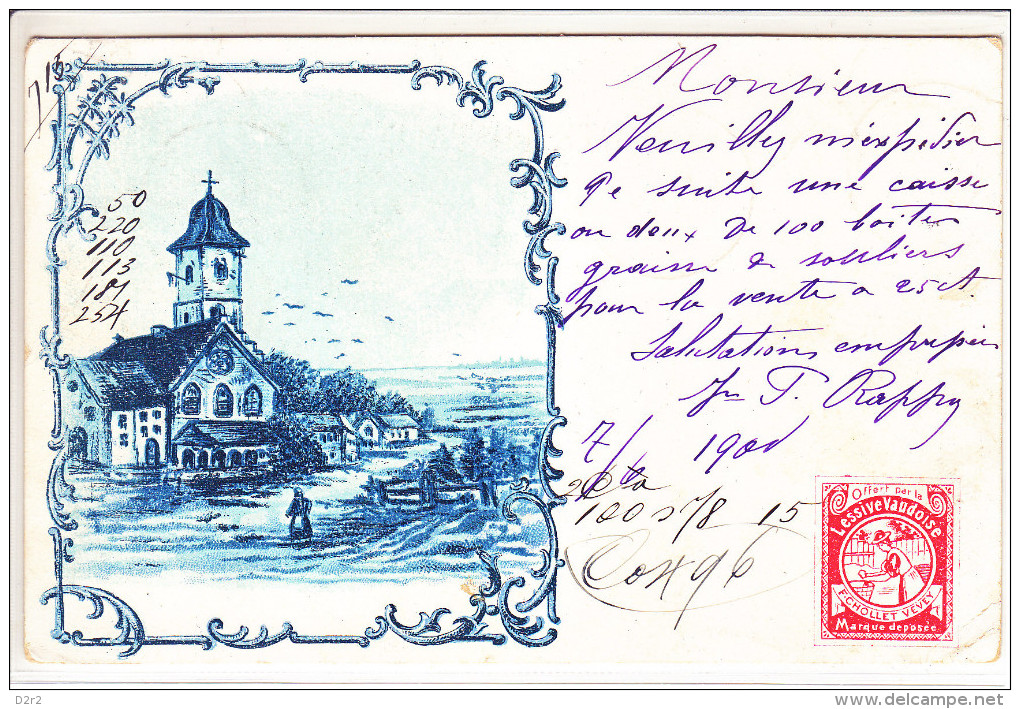 50
220
110
113
181
254
Monsieur
Veuilley m'expédier
De suite une caisse
ou deux De 100 boîtes
graisse de souliers
pour la vente a 25 ct.
Salutations
J. Rappy
7/ 190
100 15
Offert par la
Lessive Vaudoise
F. CHOLLET VEVEY
Marque deposée
D2r2
www.delcampe.net